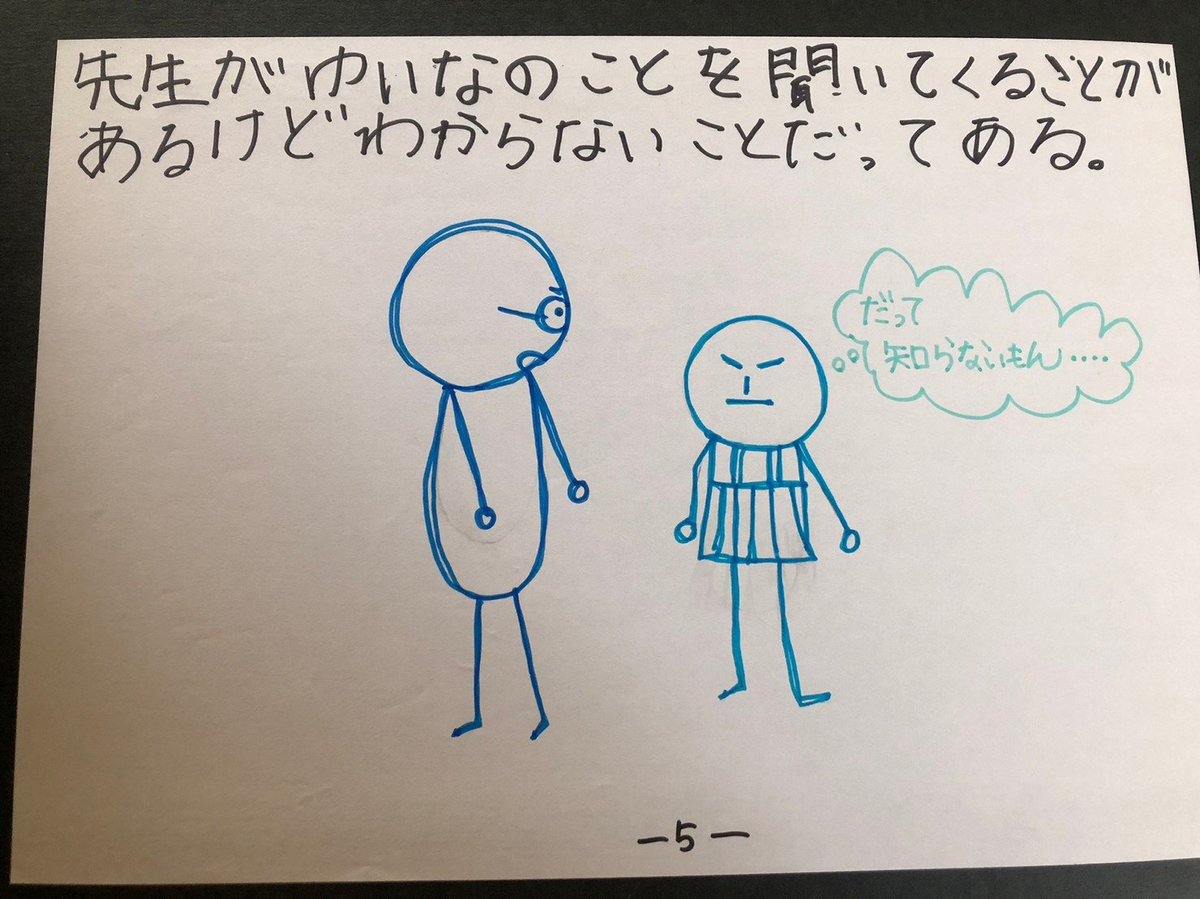 先生がゆいなのことを聞いてくることが
あるけどわからないことだってある。
だって
知らないもん····
—5—